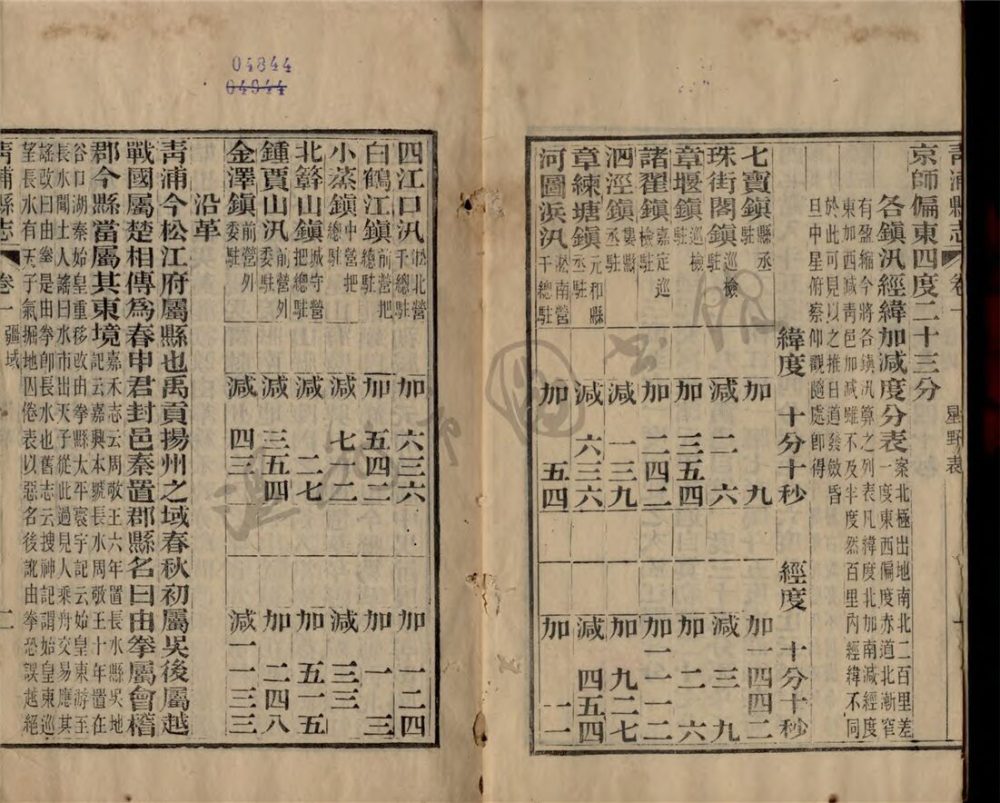 青浦縣志 卷一 星野表
京師偏東四度二十三分
各鎮汛經緯加減度分表 案北極出地南北二百里差
一度東西偏度赤道北漸窄
有盈縮今將各鎮汛算之列表凡緯度北加南減經度
東加西減青邑加減雖不及半度然百里內經緯不同
於此可見以之推日道發斂昏
旦中星俯察仰觀隨處即得
緯度 十分十秒 經度 十分十秒
七寶鎮 縣丞駐 加 九 加 一四四二
珠街閣鎮 巡檢駐 減 二六 減 三九
章堰鎮 巡檢駐 加 三五四 加 二六
諸翟鎮 嘉定巡檢駐 加 二四二 加 一一一二
泗涇鎮 婁縣丞駐 減 一三九 減 九二七
章練塘鎮 元和縣丞駐 減 六三六 減 四五四
河圖浜汛 淞南營千總駐 加 五四 加 一一
四江口汛 淞北營千總駐 加 六三六 加 一二四
白鶴江鎮 前營把總駐 加 五四二 加 一三
小蒸鎮 中營把總駐 減 七一二 減 三三
北簳山鎮 城守營把總駐 減 二七 加 五一五
鍾賈山汛 前營外委駐 減 三五四 加 二四八
金澤鎮 前營外委駐 減 四三 減 一一三三
沿革
青浦今松江府屬縣也禹貢揚州之域春秋初屬吳後屬越
戰國屬楚相傳爲春申君封邑秦置郡縣名曰由拳屬會稽
郡今縣當屬其東境 嘉禾志云周敬王六年置長水縣吳地
記云嘉興本號長水周敬王十年置在
谷口湖秦始皇重移改由拳縣太平寰宇記云始皇東游至
長水聞土人謠曰水市出天子從此過見人乘舟交易應其
謠改曰由拳是由拳即長水也舊志云搜神記謂始皇東巡
望長水有天子氣掘地囚倦表以惡名後訛由拳恐誤越絕
青浦縣志 卷一 疆域 二
04844
04944
圖書館